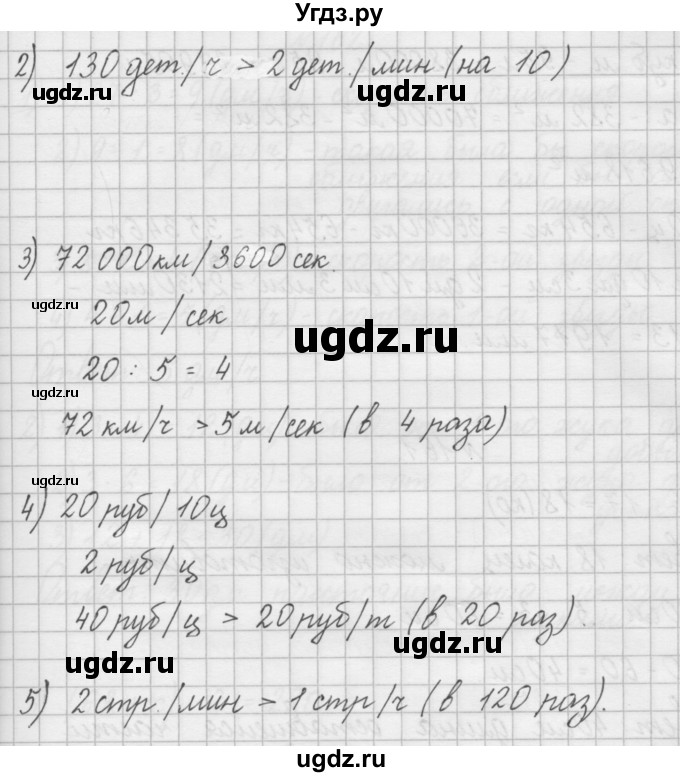 Угдз.ру
2) 130 дет./ч > 2 дет./мин (на 10)
ugdz.ru ugdz.ru
3) 72 000 км/3600 сек.
ugdz.ru
20 м/сек
ugdz.ru
20 : 5 = 4
ugdz.ru
72 км/ч > 5 м/сек (в 4 раза)
ugdz.ru
4) 20 руб/10ц
2 руб/ц
40 руб/ц > 20 руб/т (в 20 раз).
ugdz.ru
ugdz.ru
5) 2 стр./мин > 1 стр/ч (в 120 раз).
ugdz.ru